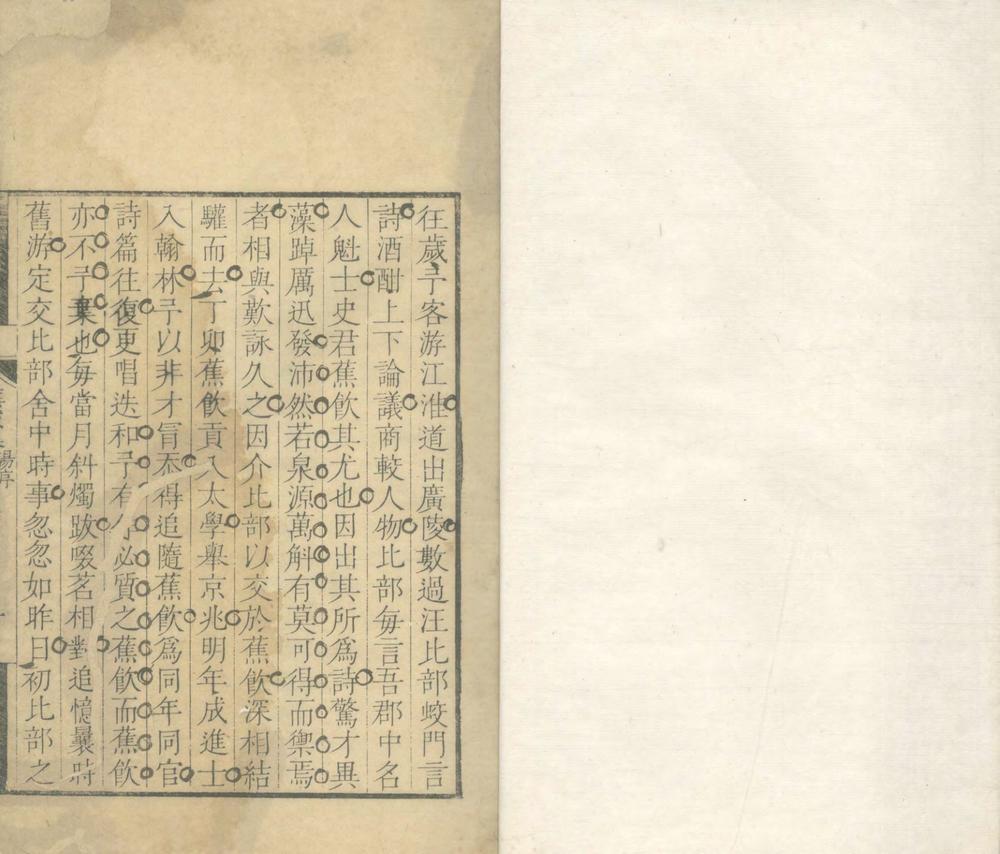 往歲予客游江淮道出廣陵數過汪比部蛟門言
詩酒酣上下論議商較人物比部每言吾郡中名
人魁士史君蕉飲其尤也因出其所為詩驚才異
藻踔厲迅發沛然若泉源萬斛有莫可得而禦焉
者相與歎詠久之因介比部以交於蕉飲深相結
驩而去丁卯蕉飲貢入太學舉京兆明年成進士
入翰林予以非才冐忝得追隨蕉飲為同年同官
詩篇往復更唱迭和予有作必質之蕉飲而蕉飲
亦不予棄也每當月斜燭跋啜茗相對追憶曩時
舊游定交比部舍中時事忽忽如昨日初比部之